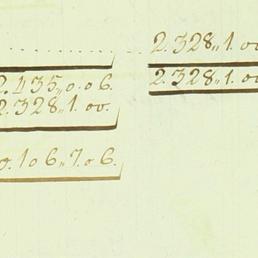 2.328,,1.00
2.435,,0.06.
2.328,,1.00
2.328,,1.00.
0.106,,7.06.